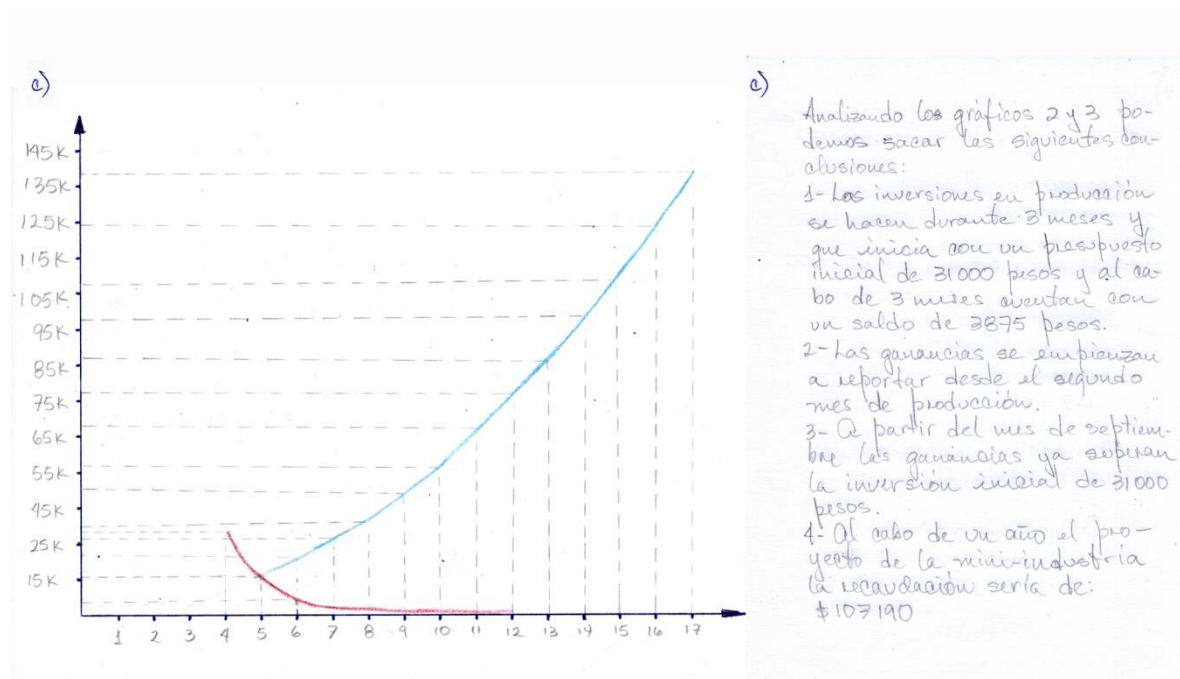 c)
145K
135K
125K
115K
105K
95K
85K
75K
65K
55K
45K
25K
15K
1 2 3 4 5 6 7 8 9 10 11 12 13 14 15 16 17
c)
Analizando los gráficos 2 y 3 po-
demos sacar las siguientes con-
clusiones:
1- Las inversiones en producción
se hacen durante 3 meses y
que inicia con un presupuesto
inicial de 31000 pesos y al ca-
bo de 3 meses cuentan con
un saldo de 3875 pesos.
2- Las ganancias se empienzan
a reportar desde el segundo
mes de producción.
3- A partir del mes de septiem-
bre las ganancias ya superan
la inversión inicial de 31000
pesos.
4- Al cabo de un año el pro-
yecto de la mini-industria
la recaudación sería de:
$107190